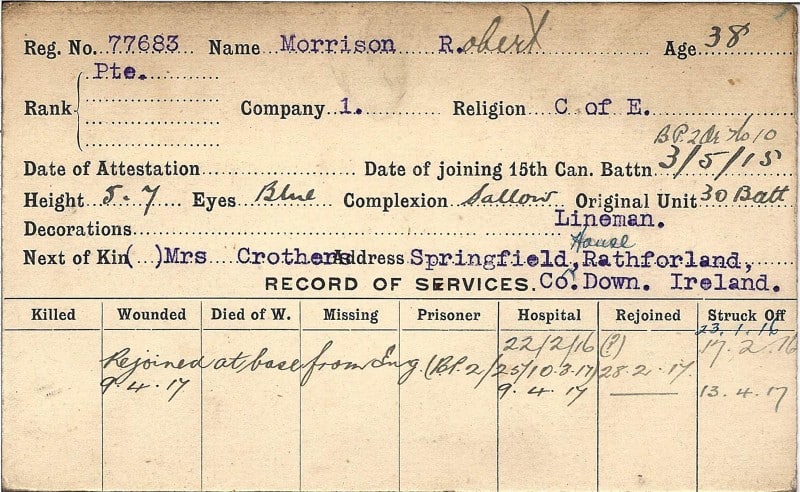 Reg. No. 77683 Name Morrison R.obert Age 38
Pte.
Rank Company 1. Religion C of E.
B.P. 2 Or No 10
Date of Attestation Date of joining 15th Can. Battn 3/5/15
Height 5.7 Eyes Blue Complexion Sallow Original Unit 30 Batt
Decorations Lineman.
House
Next of Kin( )Mrs Crothers Address Springfield, Rathforland,
RECORD OF SERVICES. Co. Down. Ireland.
Killed Wounded Died of W. Missing Prisoner Hospital Rejoined Struck Off
23.1.16
22/2/16 (?) 17.2.16
Rejoined at base from Eng. (B.P. 2/25/10.3.17) 28.2.17.
9.4.17 9.4.17 13.4.17